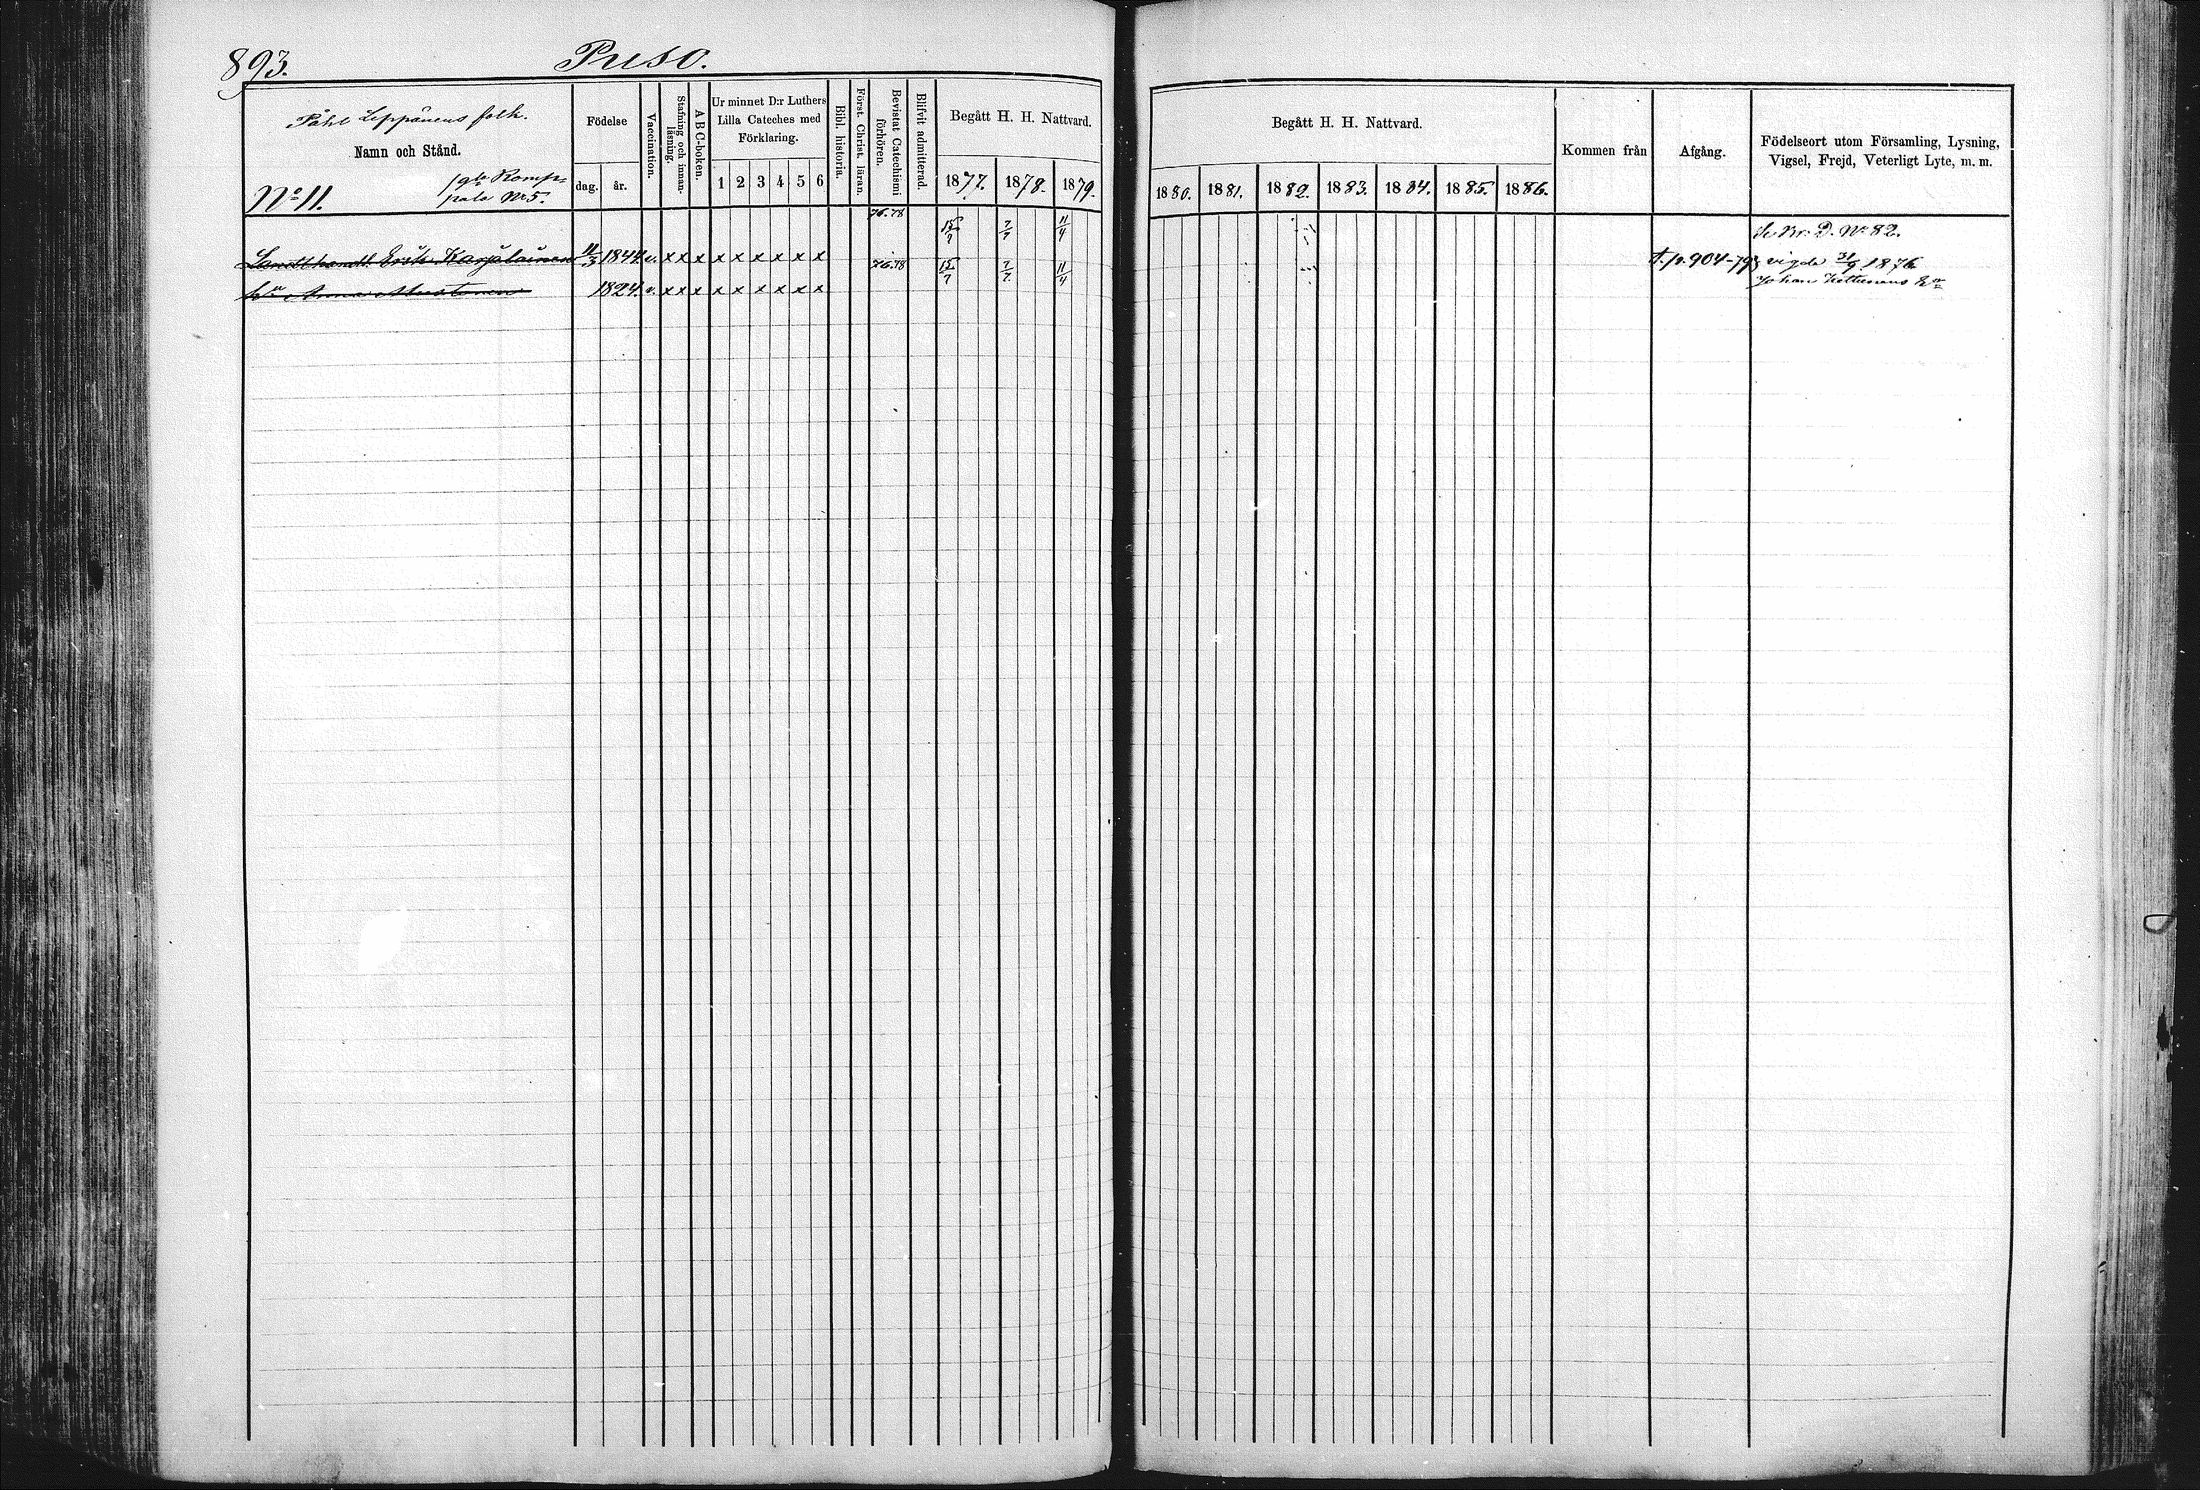 893. Puso.
Påhl Leppänens folk.
Namn och Stånd.
No 11.
pala No 5.
Födelse
dag. år.
Vaccination.
Stafning och innan-läsning.
A B C-boken.
Ur minnet D:r Luthers
Lilla Cateches med
Förklaring.
1 2 3 4 5 6
Bibl. historia.
Först. Christ. läran.
Bevistat Catechismi förhören.
Blifvit admitterad.
Begått H. H. Nattvard.
1877. 1878. 1879.
Begått H. H. Nattvard.
1880. 1881. 1882. 1883. 1884. 1885. 1886.
Kommen från
Afgång.
Födelseort utom Församling, Lysning,
Vigsel, Frejd, Veterligt Lyte, m. m.
76.78 15/7 7/7 11/4 No 82.
Erik Karjalainen 11/3 1844. v. x x x x x x x x x
76.78 15/7 7/7 11/4 p. 904-79 vigda 31/9 1876
Anna Mustonen 1824. v. x x x x x x x x x
Johan